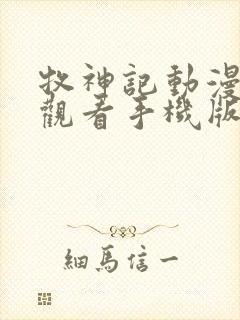 牧神記動漫
觀看手機版
細馬信一